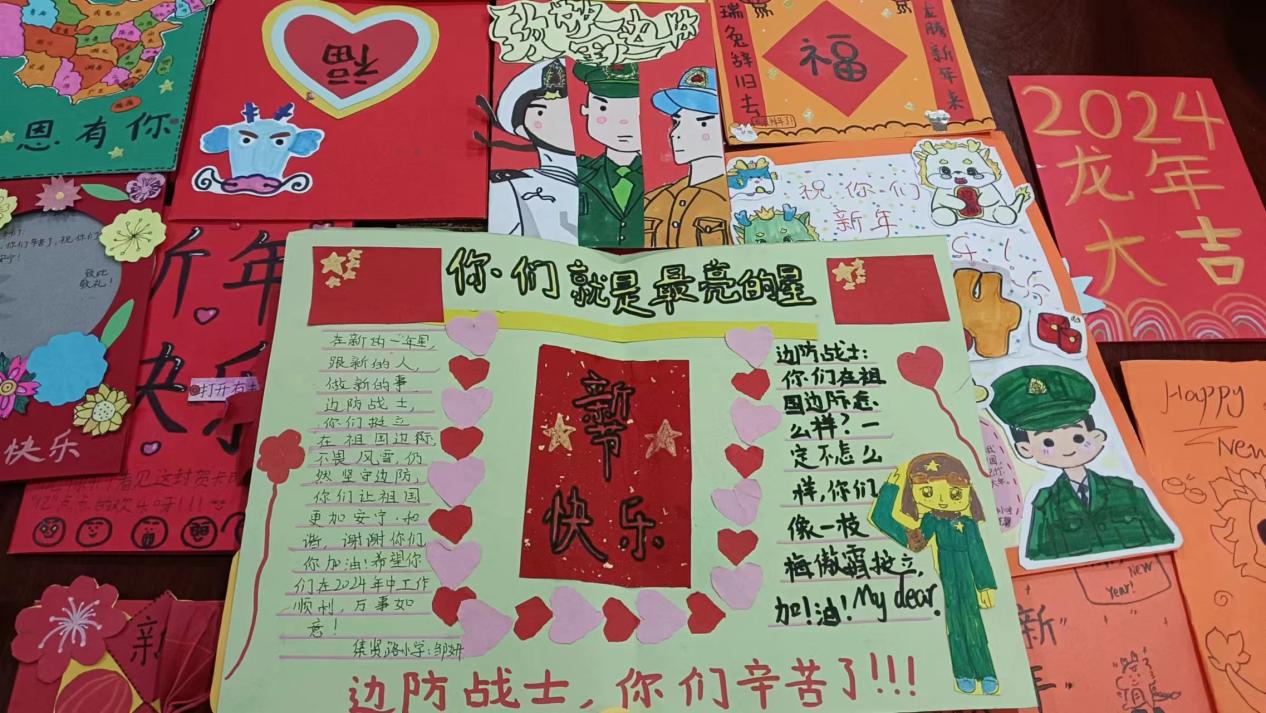 恩有你
福
福
瑞兔辞归去
龙腾新年来
2024
龙年
大吉
祝你们
新年
致此
敬礼!
快乐
新年
快
打开有
看见这封贺卡
你们就是最亮的星
在新的一年里,
跟新的人,
做新的事
边防战士,
你们挺立
在祖国边际,
不畏风雪,仍
然坚守边防,
你们让祖国
更加安宁、和
谐,谢谢你们
你加油!希望你
们在2024年中工作
顺利,万事如
意!
集贤路小学:邹妍
新
节
快乐
边防战士:
你们在祖
国边际怎
么样?一
定不怎么
样,你们
像一枝
梅傲霜挺立,
加油!My dear.
边防战士,你们辛苦了!!!
Happy
New
New
Year!
新
新